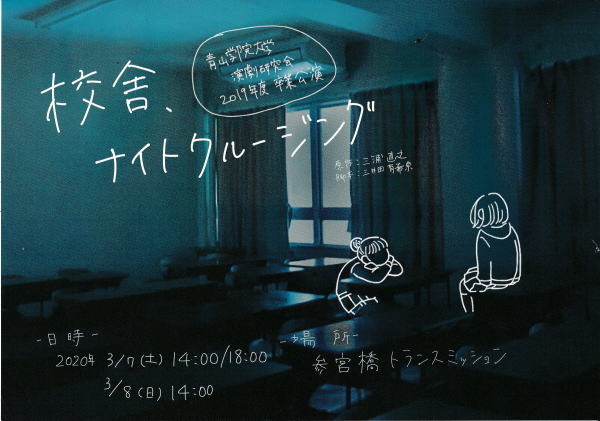 青山学院大学
演劇研究会
2019年度 卒業公演
校舎、
ナイトクルージング
原作：三浦直之
-日時-
2020年 3/7(土) 14:00/18:00
3/8(日) 14:00
-場所-
参宮橋トランスミッション